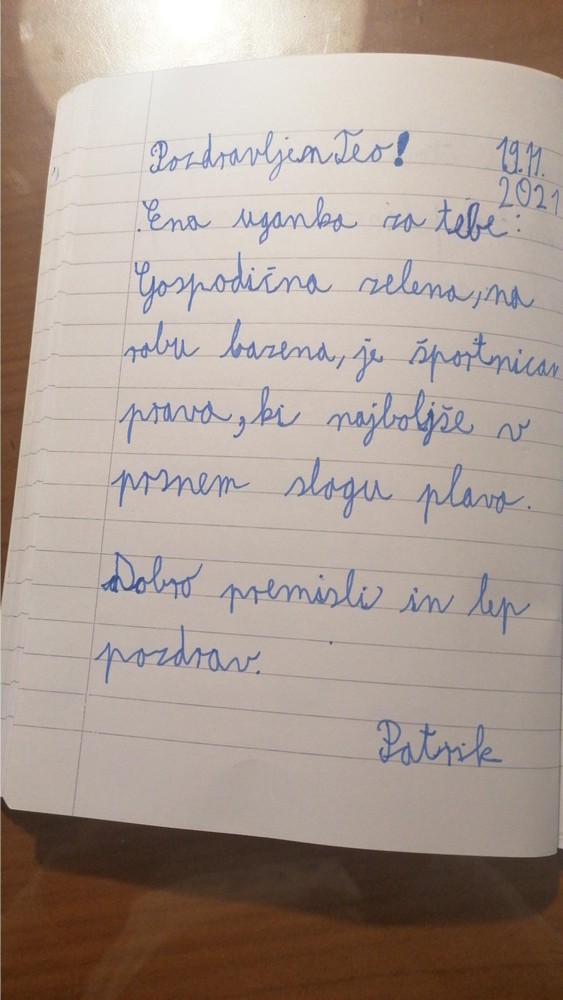 Pozdravljen Teo! 19.11.
2021
Ena uganka za tebe:
Gospodična zelena, na
robu bazena, je športnica
prava, ki najboljše v
prsnem slogu plava.
Dobro premisli in lep
pozdrav.
Patrik